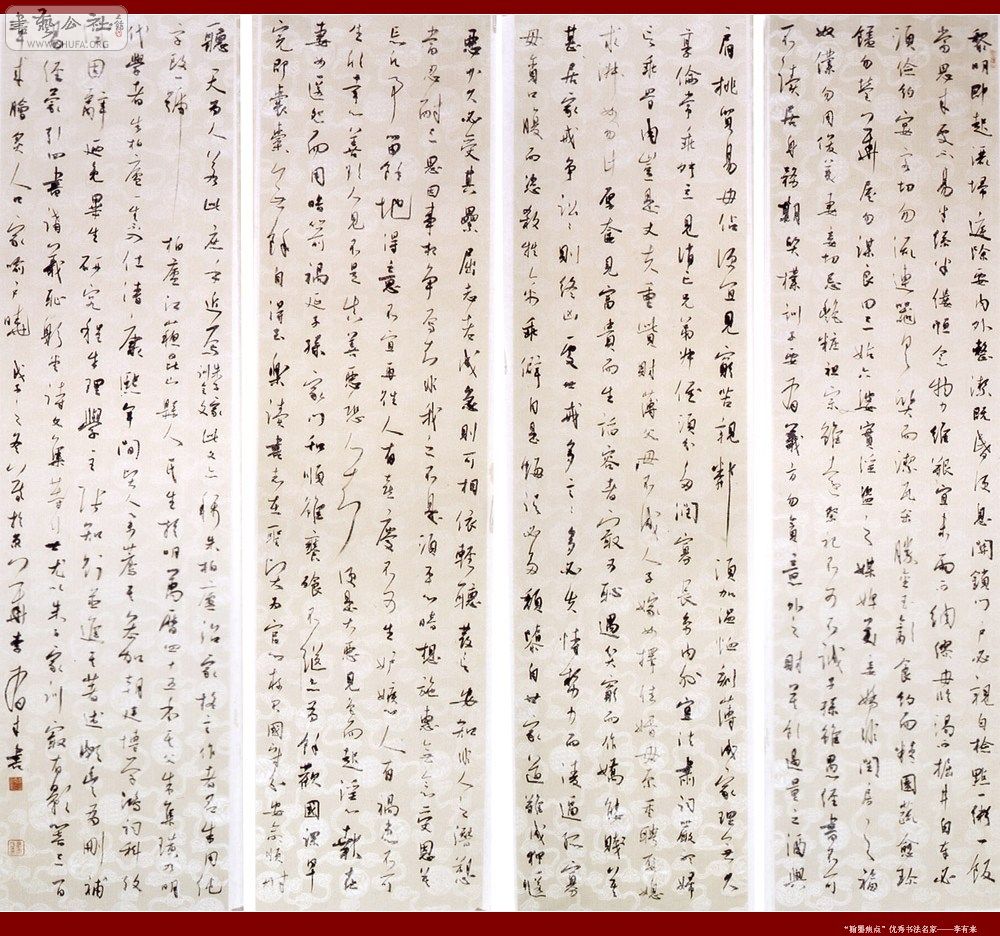 黎明即起灑掃庭除要内外整潔既昏便息關鎖門戶必親自檢點一粥一飯
當思來處不易半絲半縷恒念物力維艱宜未雨而綢繆毋臨渴而掘井自奉必
須儉約宴客切勿流連器具質而潔瓦缶勝金玉飲食約而精園蔬愈珍
饈勿營華屋勿謀良田三姑六婆實淫盜之媒婢美妾嬌非閨房之福
奴僕勿用俊美妻妾切忌艷粧祖宗雖遠祭祀不可不誠子孫雖愚經書不可
不讀居身務期質樸訓子要有義方勿貪意外之財莫飲過量之酒與
肩挑貿易毋佔便宜見窮苦親鄰須加温恤刻薄成家理無久
享倫常乖舛立見消亡兄弟叔侄須分多潤寡長幼内外宜法肅詞嚴聽婦
言乖骨肉豈是丈夫重資財薄父母不成人子嫁女擇佳婿毋索重聘娶媳
求淑女勿計厚奩見富貴而生諂容者最可恥遇貧窮而作驕態賤莫
甚居家戒爭訟訟則終凶處世戒多言言多必失恃勢力而凌逼孤寡
毋貪口腹而恣殺牲禽乖僻自是悔誤必多頹惰自甘家道難成狎暱
惡少久必受其累屈志老成急則可相依輕聽發言安知非人之譖愬
當忍耐三思因事相爭焉知非我之不是須平心暗想施惠無念受恩莫
忘凡事當留餘地得意不宜再往人有喜慶不可生妒嫉心人有禍患不可
生欣幸心善欲人見不是真善惡恐人知便是大惡見色而起淫心報在
妻女匿怨而用暗箭禍延子孫家門和順雖饔飧不繼亦有餘歡國課早
完即囊橐無餘自得至樂讀書志在聖賢為官心存君國守分安命順時
聽天為人若此庶乎近焉朱子家訓全文此文亦稱朱柏廬治家格言作者名朱用純
字致一號柏廬江蘇崑山縣人氏生於明萬曆四十五年其父朱集璜乃明
代學者朱柏廬一生不仕清康熙年間朝廷博學鴻詞科後
固辭乃免畢生研究程朱理學主張知行並進其著述頗豐有刪補
易經蒙引四書講義恥耕堂詩文集等世尤以朱子家訓最有影響三百
年來膾炙人口家喻戶曉戊子之冬李有來書
書藝公社
WWW.SHUFA.ORG
“翰墨焦点”优秀书法名家——李有来